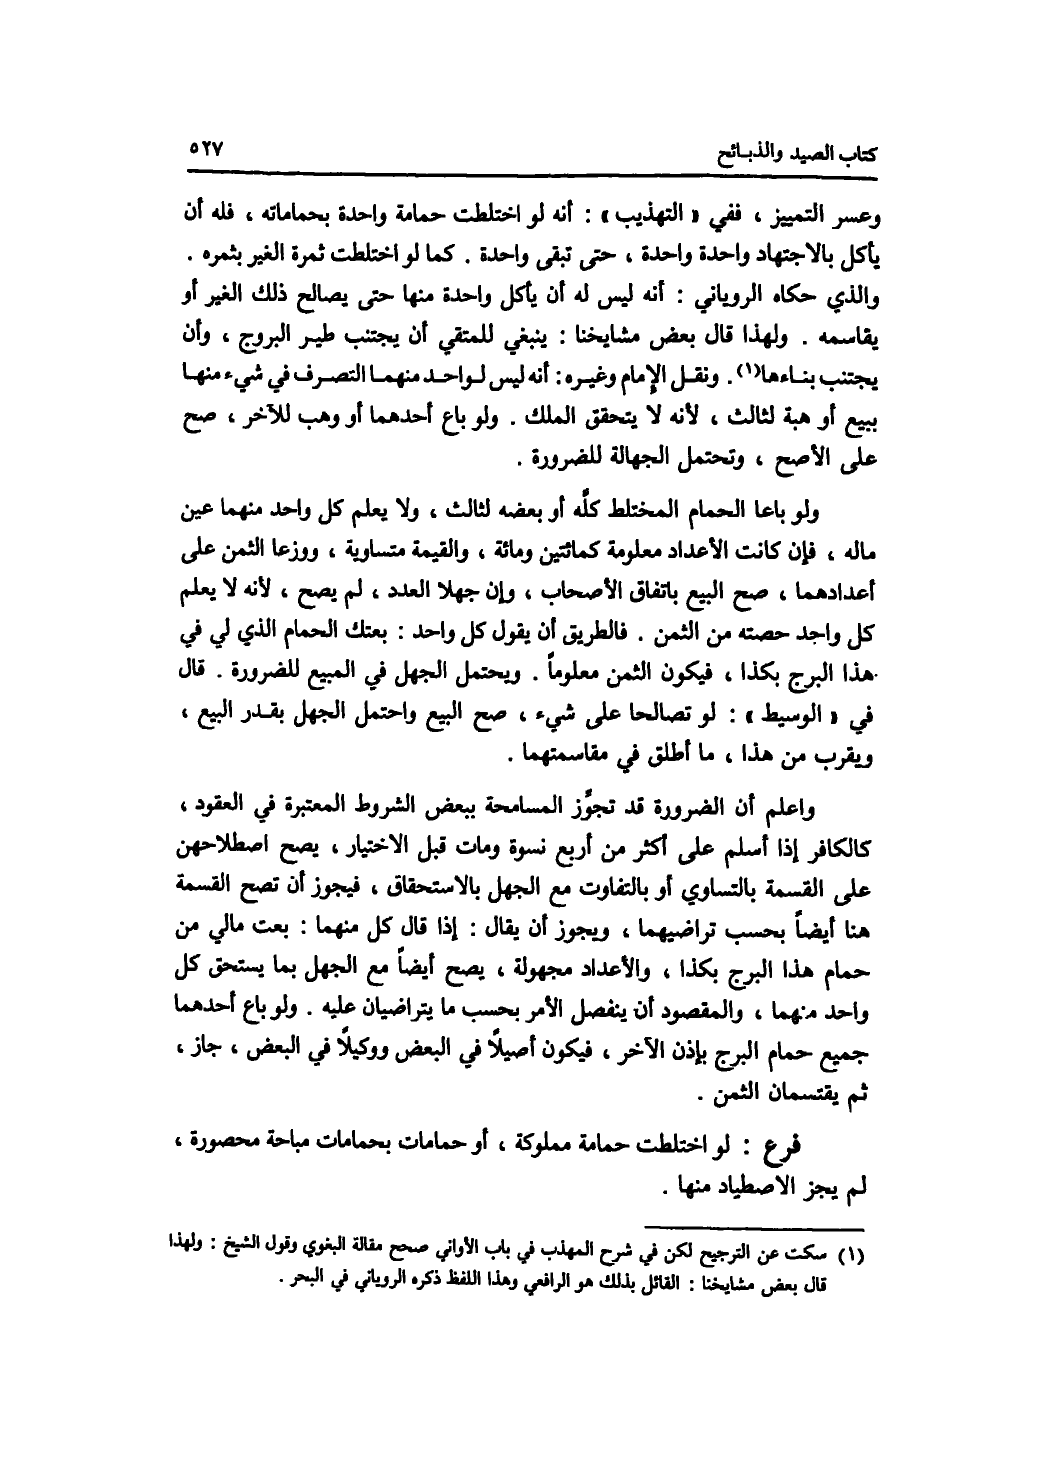 كتاب الصيد والذبائح ٥٢٧
وعسر التمييز ، ففي « التهذيب » : أنه لو اختلطت حمامة واحدة بحماماته ، فله أن
يأكل بالاجتهاد واحدة واحدة ، حتى تبقى واحدة . كما لو اختلطت ثمرة الغير بثمره .
والذي حكاه الروياني : أنه ليس له أن يأكل واحدة منها حتى يصالح ذلك الغير أو
يقاسمه . ولهذا قال بعض مشايخنا : ينبغي للمتقي أن يجتنب طير البروج ، وأن
يجتنب بناءها(١). ونقل الإمام وغيره: أنه ليس لواحد منهما التصرف في شيء منها
ببيع أو هبة لثالث ، لأنه لا يتحقق الملك . ولو باع أحدهما أو وهب للآخر ، صح
على الأصح ، وتحتمل الجهالة للضرورة .
ولو باعا الحمام المختلط كلَّه أو بعضه لثالث ، ولا يعلم كل واحد منهما عين
ماله ، فإن كانت الأعداد معلومة كمائتين ومائة ، والقيمة متساوية ، ووزعا الثمن على
أعدادهما ، صح البيع باتفاق الأصحاب ، وإن جهلا العدد ، لم يصح ، لأنه لا يعلم
كل واحد حصته من الثمن . فالطريق أن يقول كل واحد : بعتك الحمام الذي لي في
هذا البرج بكذا ، فيكون الثمن معلوماً . ويحتمل الجهل في المبيع للضرورة . قال
في « الوسيط » : لو تصالحا على شيء ، صح البيع واحتمل الجهل بقدر البيع ،
ويقرب من هذا ، ما أطلق في مقاسمتهما .
واعلم أن الضرورة قد تجوِّز المسامحة ببعض الشروط المعتبرة في العقود ،
كالكافر إذا أسلم على أكثر من أربع نسوة ومات قبل الاختيار ، يصح اصطلاحهن
على القسمة بالتساوي أو بالتفاوت مع الجهل بالاستحقاق ، فيجوز أن تصح القسمة
هنا أيضاً بحسب تراضيهما ، ويجوز أن يقال : إذا قال كل منهما : بعت مالي من
حمام هذا البرج بكذا ، والأعداد مجهولة ، يصح أيضاً مع الجهل بما يستحق كل
واحد منهما ، والمقصود أن ينفصل الأمر بحسب ما يتراضيان عليه . ولو باع أحدهما
جميع حمام البرج بإذن الآخر ، فيكون أصيلًا في البعض ووكيلًا في البعض ، جاز ،
ثم يقتسمان الثمن .
فرع : لو اختلطت حمامة مملوكة ، أو حمامات بحمامات مباحة محصورة ،
لم يجز الاصطياد منها .
(١) سكت عن الترجيح لكن في شرح المهذب في باب الأواني صحح مقالة البغوي وقول الشيخ : ولهذا
قال بعض مشايخنا : القائل بذلك هو الرافعي وهذا اللفظ ذكره الروياني في البحر .